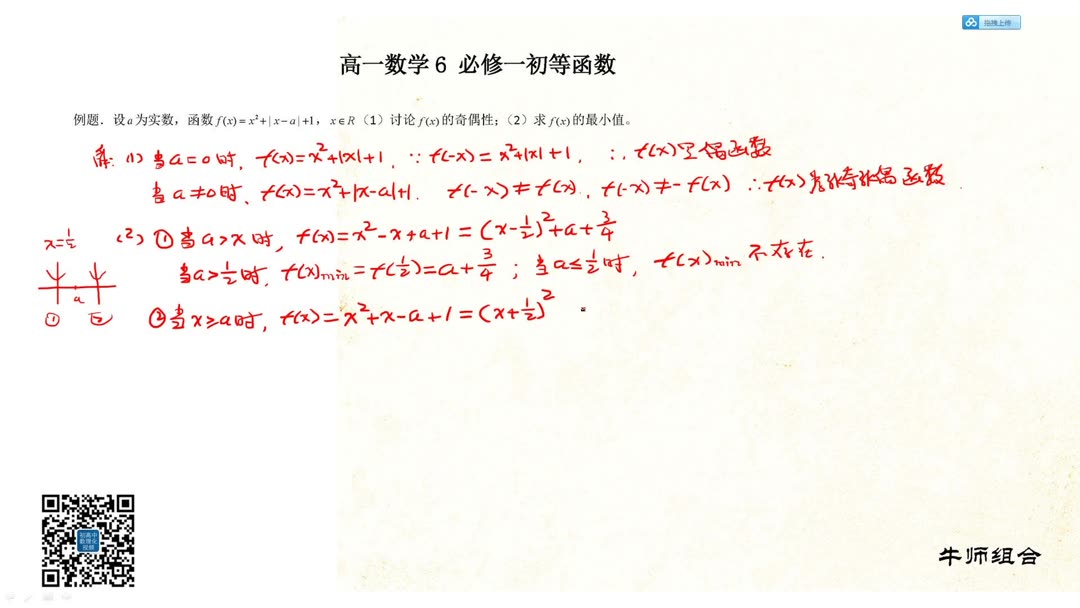 拖拽上传
高一数学 6 必修一初等函数
例题．设a为实数，函数f(x)=x²+|x-a|+1，x∈R（1）讨论f(x)的奇偶性；（2）求f(x)的最小值。
解: (1) 当a=0时, f(x)=x²+|x|+1, ∵f(-x)=x²+|x|+1, ∴f(x)是偶函数
当a≠0时, f(x)=x²+|x-a|+1. f(-x)≠f(x), f(-x)≠-f(x) ∴f(x)为非奇非偶函数.
(2) ①当a>x时, f(x)=x²-x+a+1=(x-1/2)²+a+3/4
x=1/2
当a>1/2时, f(x)min=f(1/2)=a+3/4; 当a≤1/2时, f(x)min不存在.
a
① ②
②当x≥a时, f(x)=x²+x-a+1=(x+1/2)²
初高中
视频
牛师组合